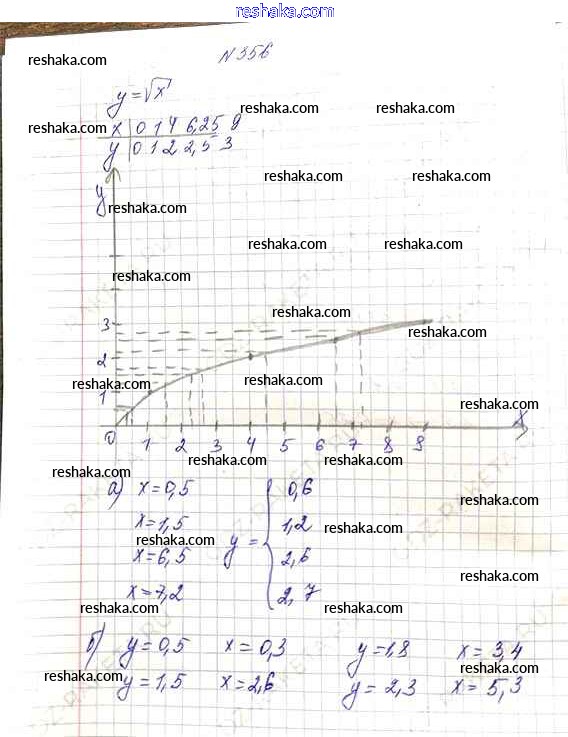 reshaka.com
N 356
reshaka.com
y = √x
reshaka.com reshaka.com reshaka.com
reshaka.com x | 0 1 4 6,25 9 reshaka.com
y | 0 1 2 2,5 3
reshaka.com reshaka.com
y reshaka.com
reshaka.com reshaka.com
reshaka.com
reshaka.com
3 reshaka.com
2
reshaka.com
1 reshaka.com
0 1 2 3 4 5 6 7 8 9 x
reshaka.com reshaka.com
reshaka.com
а) x = 0,5 0,6 reshaka.com
x = 1,5 y = 1,2 reshaka.com
x = 6,5 2,6
x = 7,2 2,7 reshaka.com
reshaka.com reshaka.com
б) y = 0,5 x = 0,3 y = 1,8 x = 3,4
reshaka.com reshaka.com
y = 1,5 x = 2,6 y = 2,3 x = 5,3